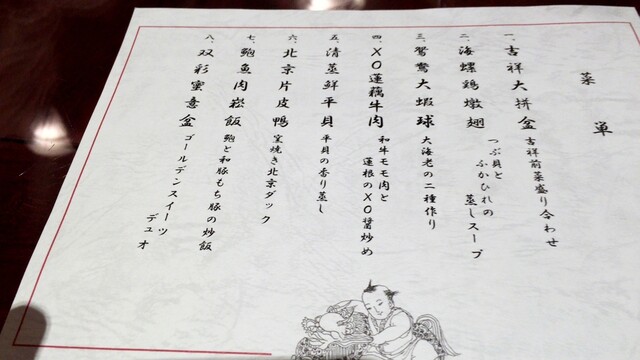 菜単
一、吉祥大拼盆
吉祥前菜盛り合わせ
二、海螺鶏燉翅
つぶ貝と
ふかひれの
蒸しスープ
三、鴛鴦大蝦球
大海老の二種作り
四、XO蓮藕牛肉
和牛モモ肉と
蓮根のXO醤炒め
五、清蒸鮮平貝
平貝の香り蒸し
六、北京片皮鴨
窯焼き北京ダック
七、鮑魚肉崧飯
鮑と和豚もち豚の炒飯
八、双彩蜜意盆
ゴールデンスイーツ
デュオ